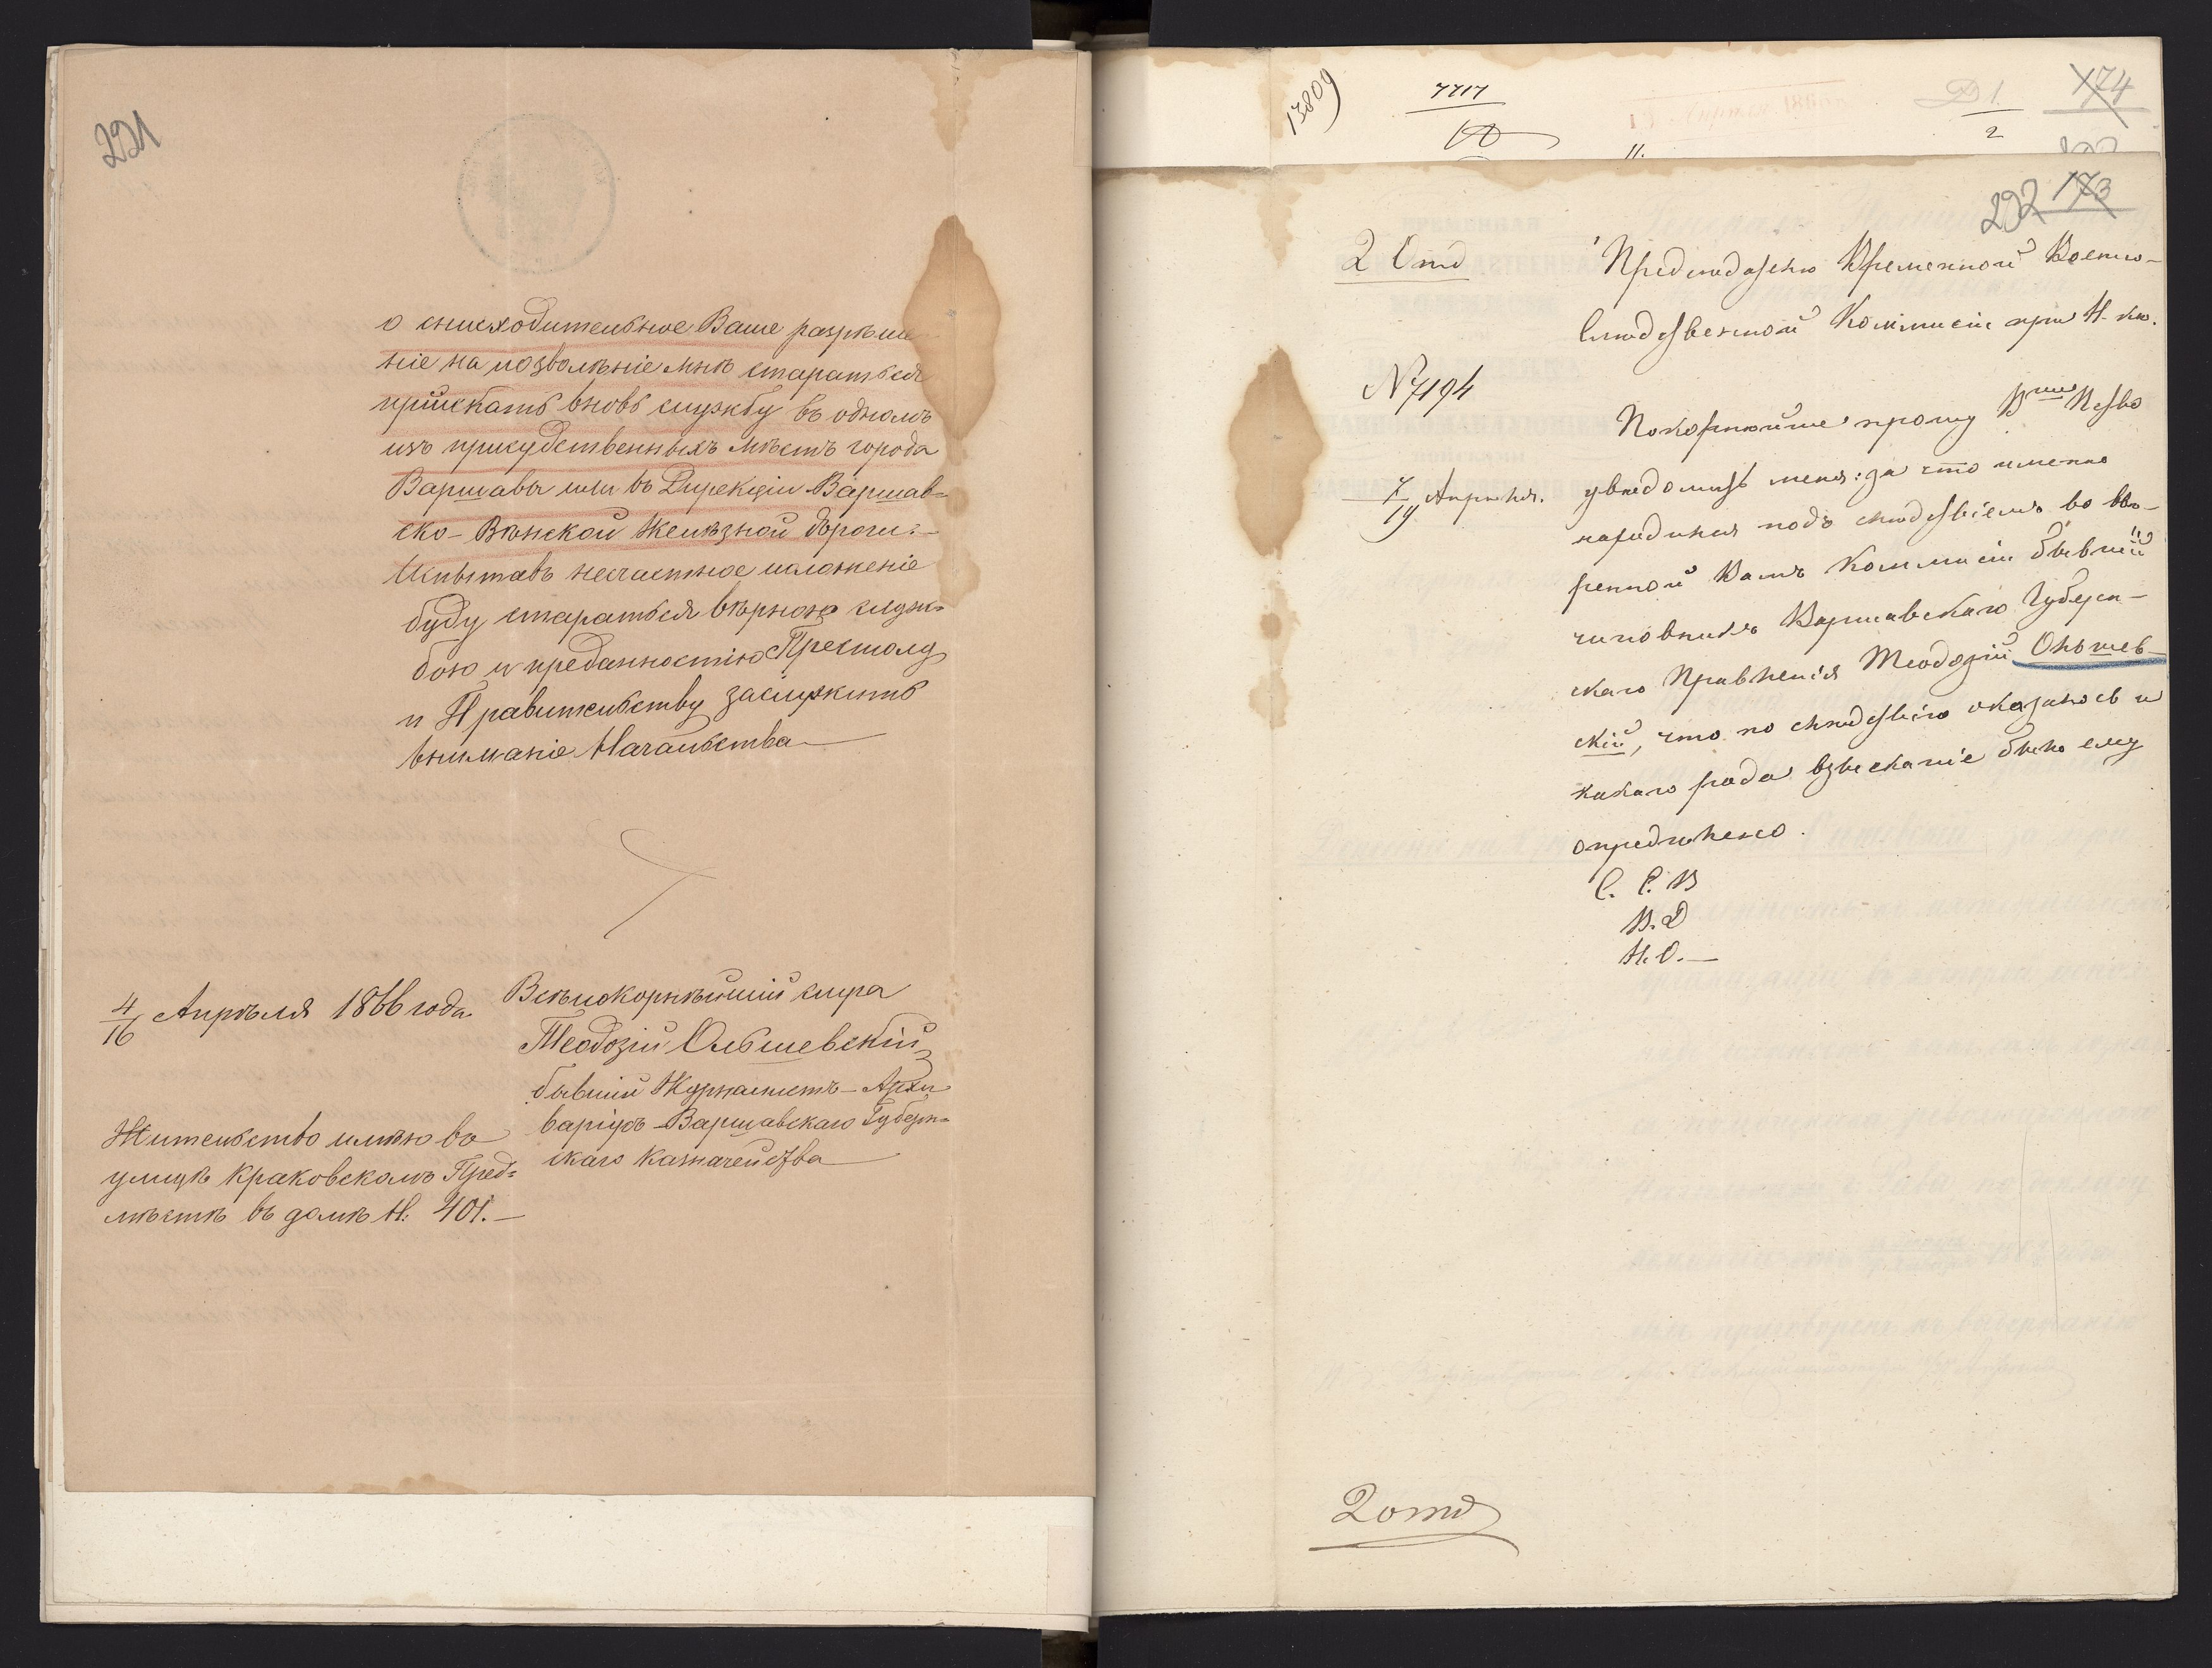 221
о снисходительное Ваше разрѣше
ніе на позволѣніе мнѣ стараться
пріискать вновь службу въ одномъ
изъ присудственныхъ мѣстъ города
Варшавы или въ Дирекціи Варшав=
ско-Вѣнской Желѣзной дороги.-
Испытавъ несчастное положеніе
буду стараться вѣрною служ=
бою и преданностію Престолу
и Правительству заслужить
вниманіе Начальства
4/16 Апрѣля 1866 года
Всѣпокорнѣйшій слуга
Теодозій Ольшевскій
бывшій Журналистъ-Архи
варіусъ-Варшавскаго Губерн=
скаго Казначейства
Жительство имѣю во
улицѣ Краковскомъ Пред=
мѣстѣ въ домѣ Н: 401.-
13809
7717
Д 1.
2
174
292 173
2 Отд
Предсѣдателю Временной Военно-
Слѣдственной Коммисіи при Н-кѣ.
N 7194
7/19 Апрѣля.
Покорнѣйше прошу В
увѣдомить меня: за что именно
находился подъ слѣдствіемъ во ввѣ-
ренной Вамъ Коммисіи бывшій
чиновникъ Варшавскаго Губерн-
скаго Правленія Теодозій Ольшев-
скій, что по слѣдствію оказалось и
какаго рода взысканіе было ему
опредѣлено.
С. Е. В
В. Д
Н. О.-
2 отд